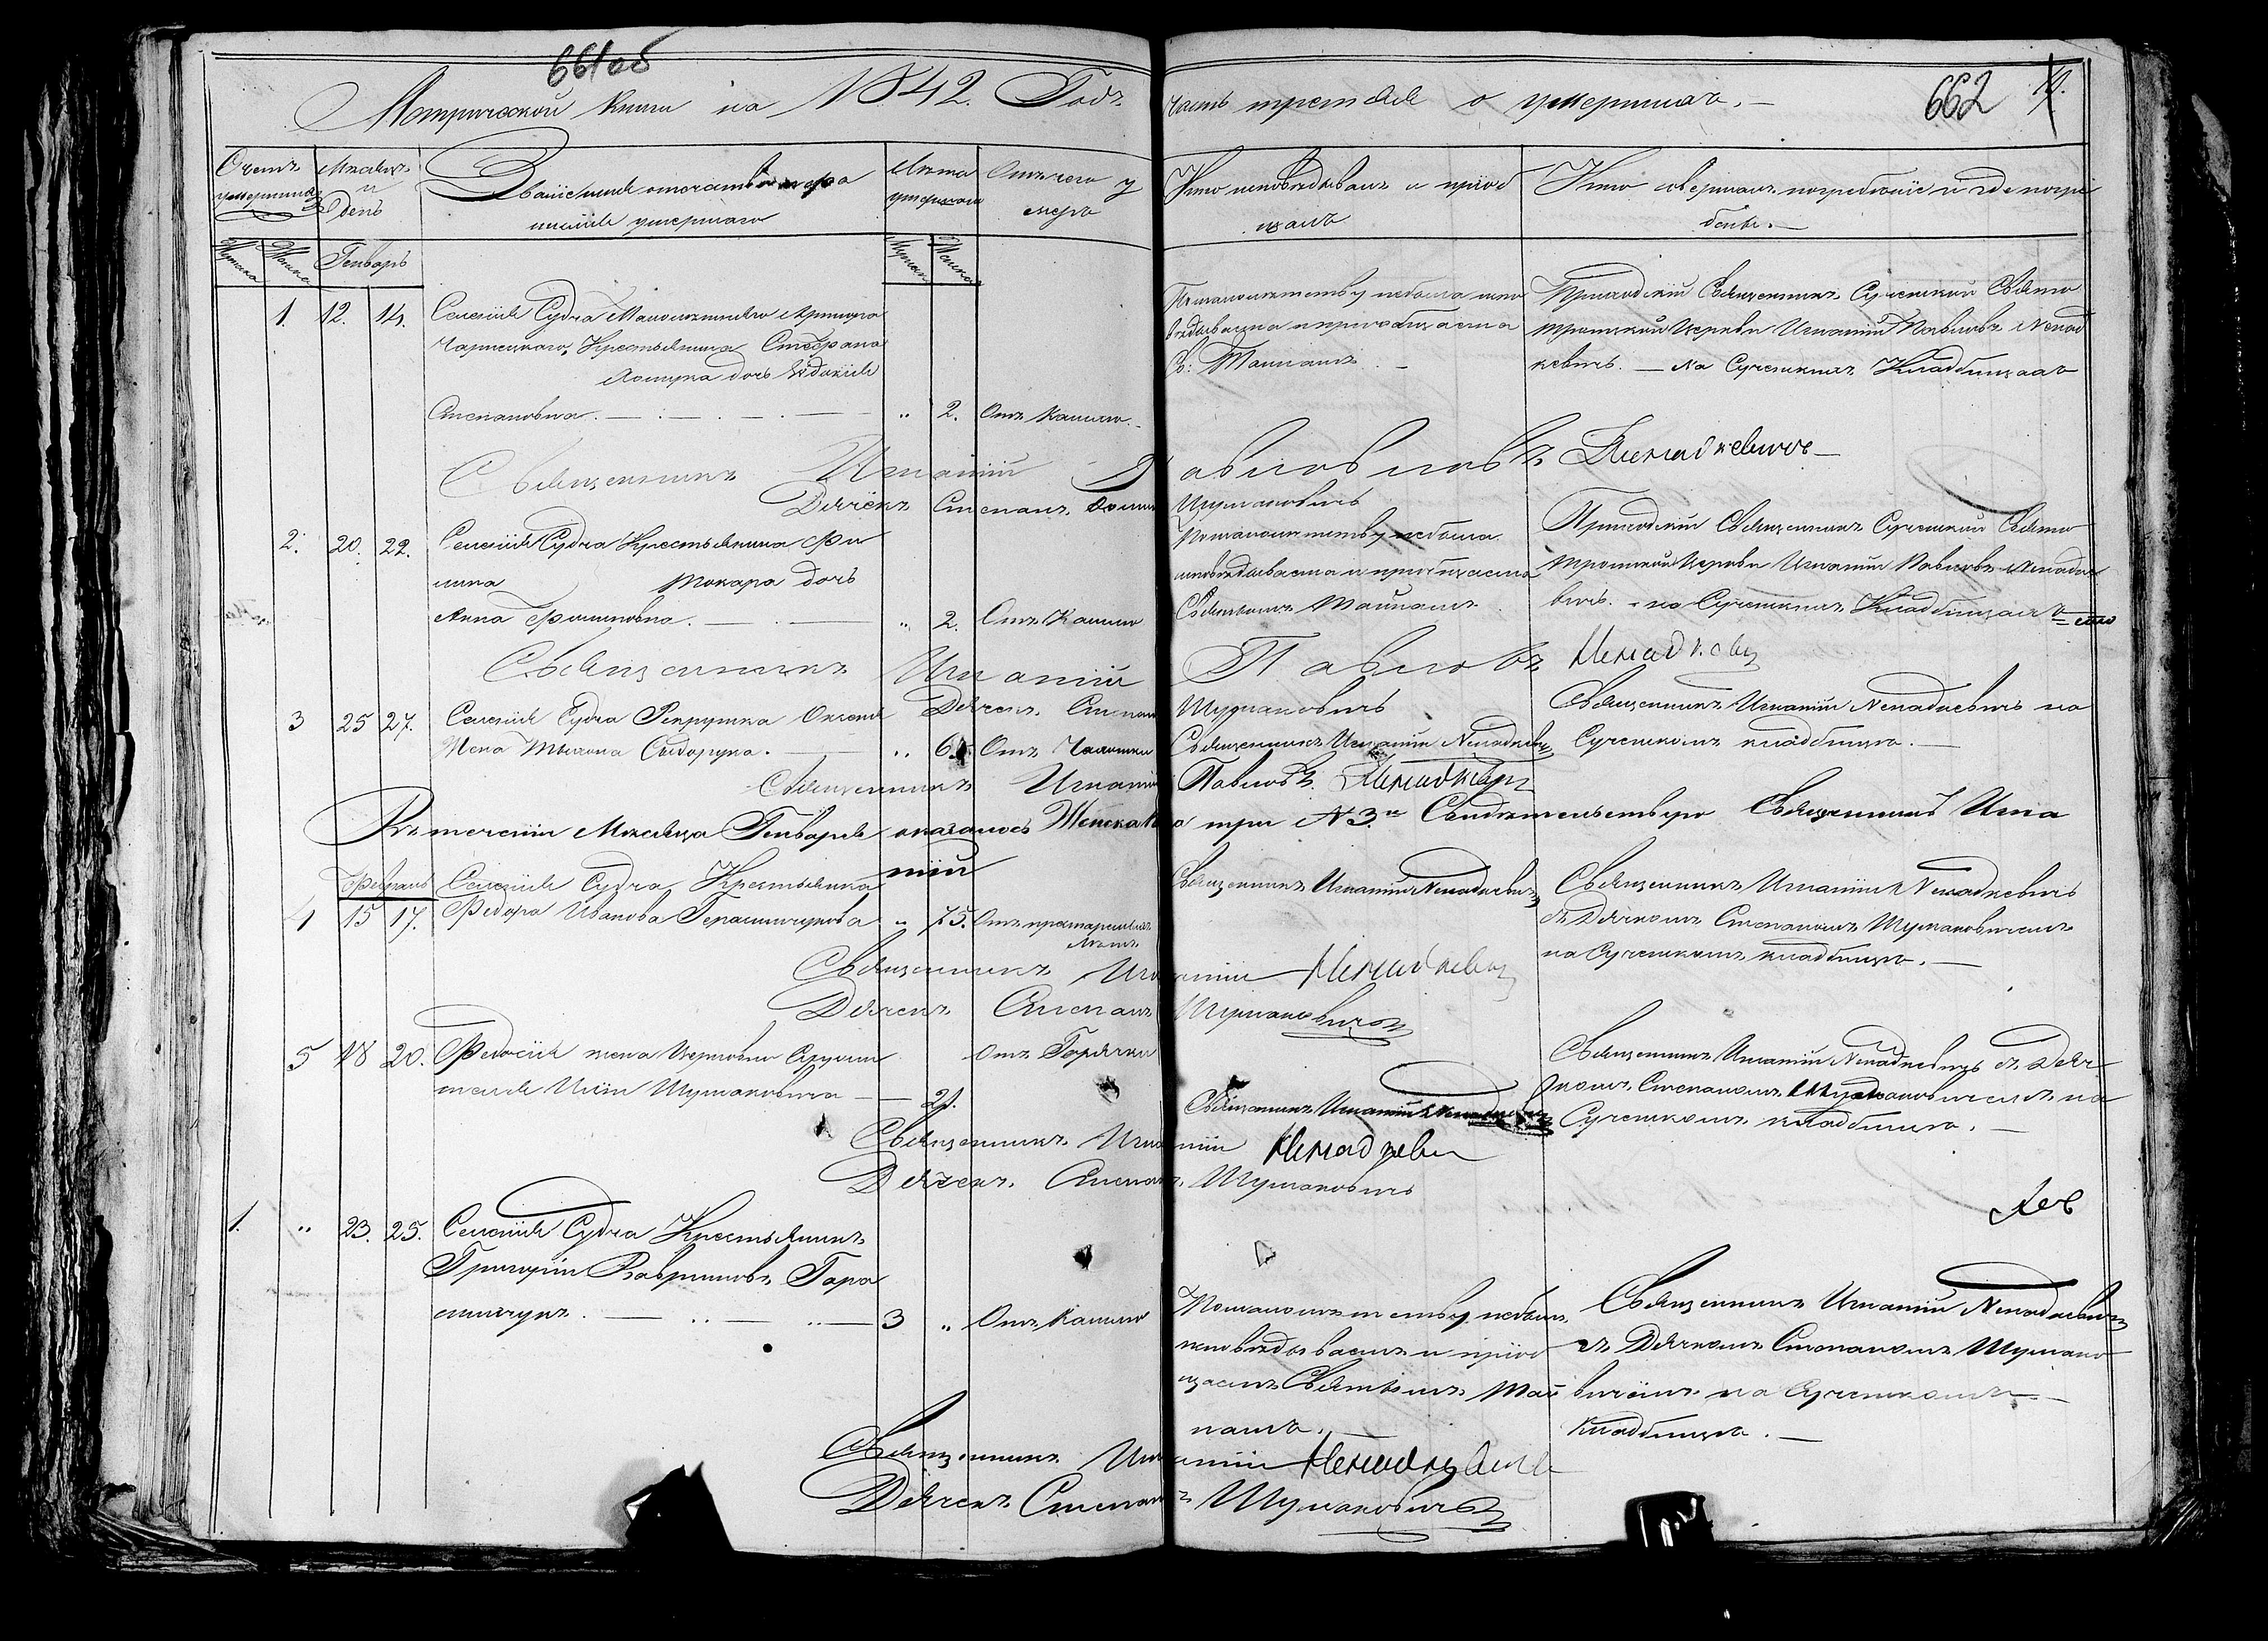 661об
Метрической Книги на 1842. Годъ
часть третьяя о умершихъ. —
662
Счетъ умершихъ
Мѣсяцъ и День
Званіе имя отечество и фамилія умершаго
Лѣта умершаго
Отъ чего умеръ
Кто исповѣдывалъ и пріобщалъ
Кто совершалъ погребеніе и где погребены. —
Мужеска
Женска
Генварь
Мужеска
Женска
1. 12. 14.
Селенія Судча
крестьянина Стефана
дочь Евдокія
Степановна. — „ 2. Отъ Кашлю. —
По малолѣтству небыла испо
вѣдываема и приобщаема
Св: Тайнамъ. —
Приходскій Священникъ Судченской Свято
троицкой Церкви Игнатій Павловъ Ненад
кевичъ. — на Судченскихъ Кладбищахъ
Священникъ Игнатій Павловъ Ненадкевичъ —
Дячекъ Степанъ Шумаковичъ
2. 20. 22.
Селенія Судча Крестьянина Фи
липа Токара дочь
Анна Филиповна. — „ 2. Отъ Кашлю
По малолѣтству небыла
исповѣдываема и приобщаема
Святымъ Тайнамъ
Приходскій Священникъ Судченской Свято
троицкой Церкви Игнатій Павловъ Ненадке
вичъ. — на Судченскихъ Кладбищахъ
Священникъ Игнатій Павловъ Ненадкевичъ
Дячекъ Степанъ Шумаковичъ
3 25 27.
Селенія Судча Рекрутка Оксенія
Жена Тихона Сидорука. — „ Отъ Чахотки
Священникъ Игнатій Ненадкевичъ
Священникъ Игнатій Ненадкевичъ на
Судченскомъ кладбищѣ. —
Священникъ Игнатій Павловъ. Ненадкевичъ
Въ теченіи Мѣсяца Генваря оказалось Женска три №3. Свидѣтельствую Священникъ Игна
тій
Февраль
4 15 17.
Селенія Судча Крестьянка
Федора Иванова Герасимчукова „ 75. Отъ престарелихъ
лѣтъ
Священникъ Игнатій Ненадкевичъ
Священникъ Игнатій Ненадкевичъ
съ Дячкомъ Степаномъ Шумаковичемъ
на Судченскомъ кладбищѣ. —
Священникъ Игнатій Ненадкевичъ
Дячекъ Степанъ Шумаковичъ
5 18 20.
Федосія жена Церковно служи
теля Иліи Шумаковича — 21. Отъ Горячки
Священникъ Игнатій Ненадкевичъ
Священникъ Игнатій Ненадкевичъ съ Дяч
комъ Степаномъ Шумаковичемъ на
Судченскомъ кладбищѣ. —
Священникъ Игнатій Ненадкевичъ
Дячекъ Степанъ Шумаковичъ
1. „ 23. 25.
Селенія Судча Крестьянинъ
Григорій Вавриновъ Гара
симчукъ. — 3 „ Отъ Кашлю
По малолѣтству небылъ
исповѣдываемъ и пріоб
щаемъ Святымъ Тай
намъ.
Священникъ Игнатій Ненадкевичъ
съ Дячкомъ Степаномъ Шумако
вичемъ на Судченскомъ —
кладбищѣ. —
Священникъ Игнатій Ненадкевичъ
Дячекъ Степанъ Шумаковичъ